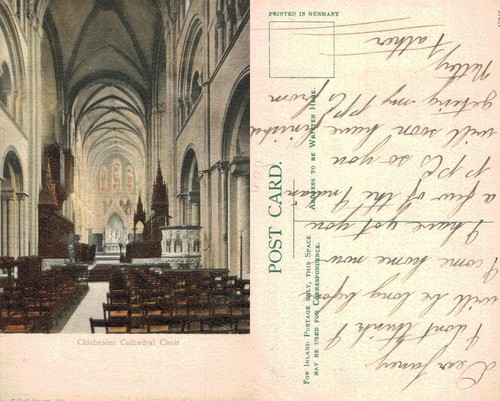 Chichester Cathedral Choir
PRINTED IN GERMANY
POST CARD.
ADDRESS TO BE WRITTEN HERE.
FOR INLAND POSTAGE ONLY, THIS SPACE
MAY BE USED FOR CORRESPONDENCE.
Dear
I dont think I
will be long before
I come home now
I have got you
a few of the Indian
P Pcs so you
will soon have finished
geting my PPCs from
Netley
Father